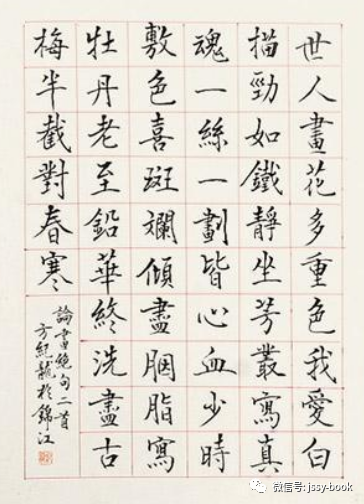 世人畫花多重色我愛白
描勁如鐵靜坐芳叢寫真
魂一絲一劃皆心血少時
敷色喜斑斕傾盡胭脂寫
牡丹老至鉛華終洗盡古
梅半截對春寒
論畫絕句二首
方紀龍於錦江
微信号: jssy-book